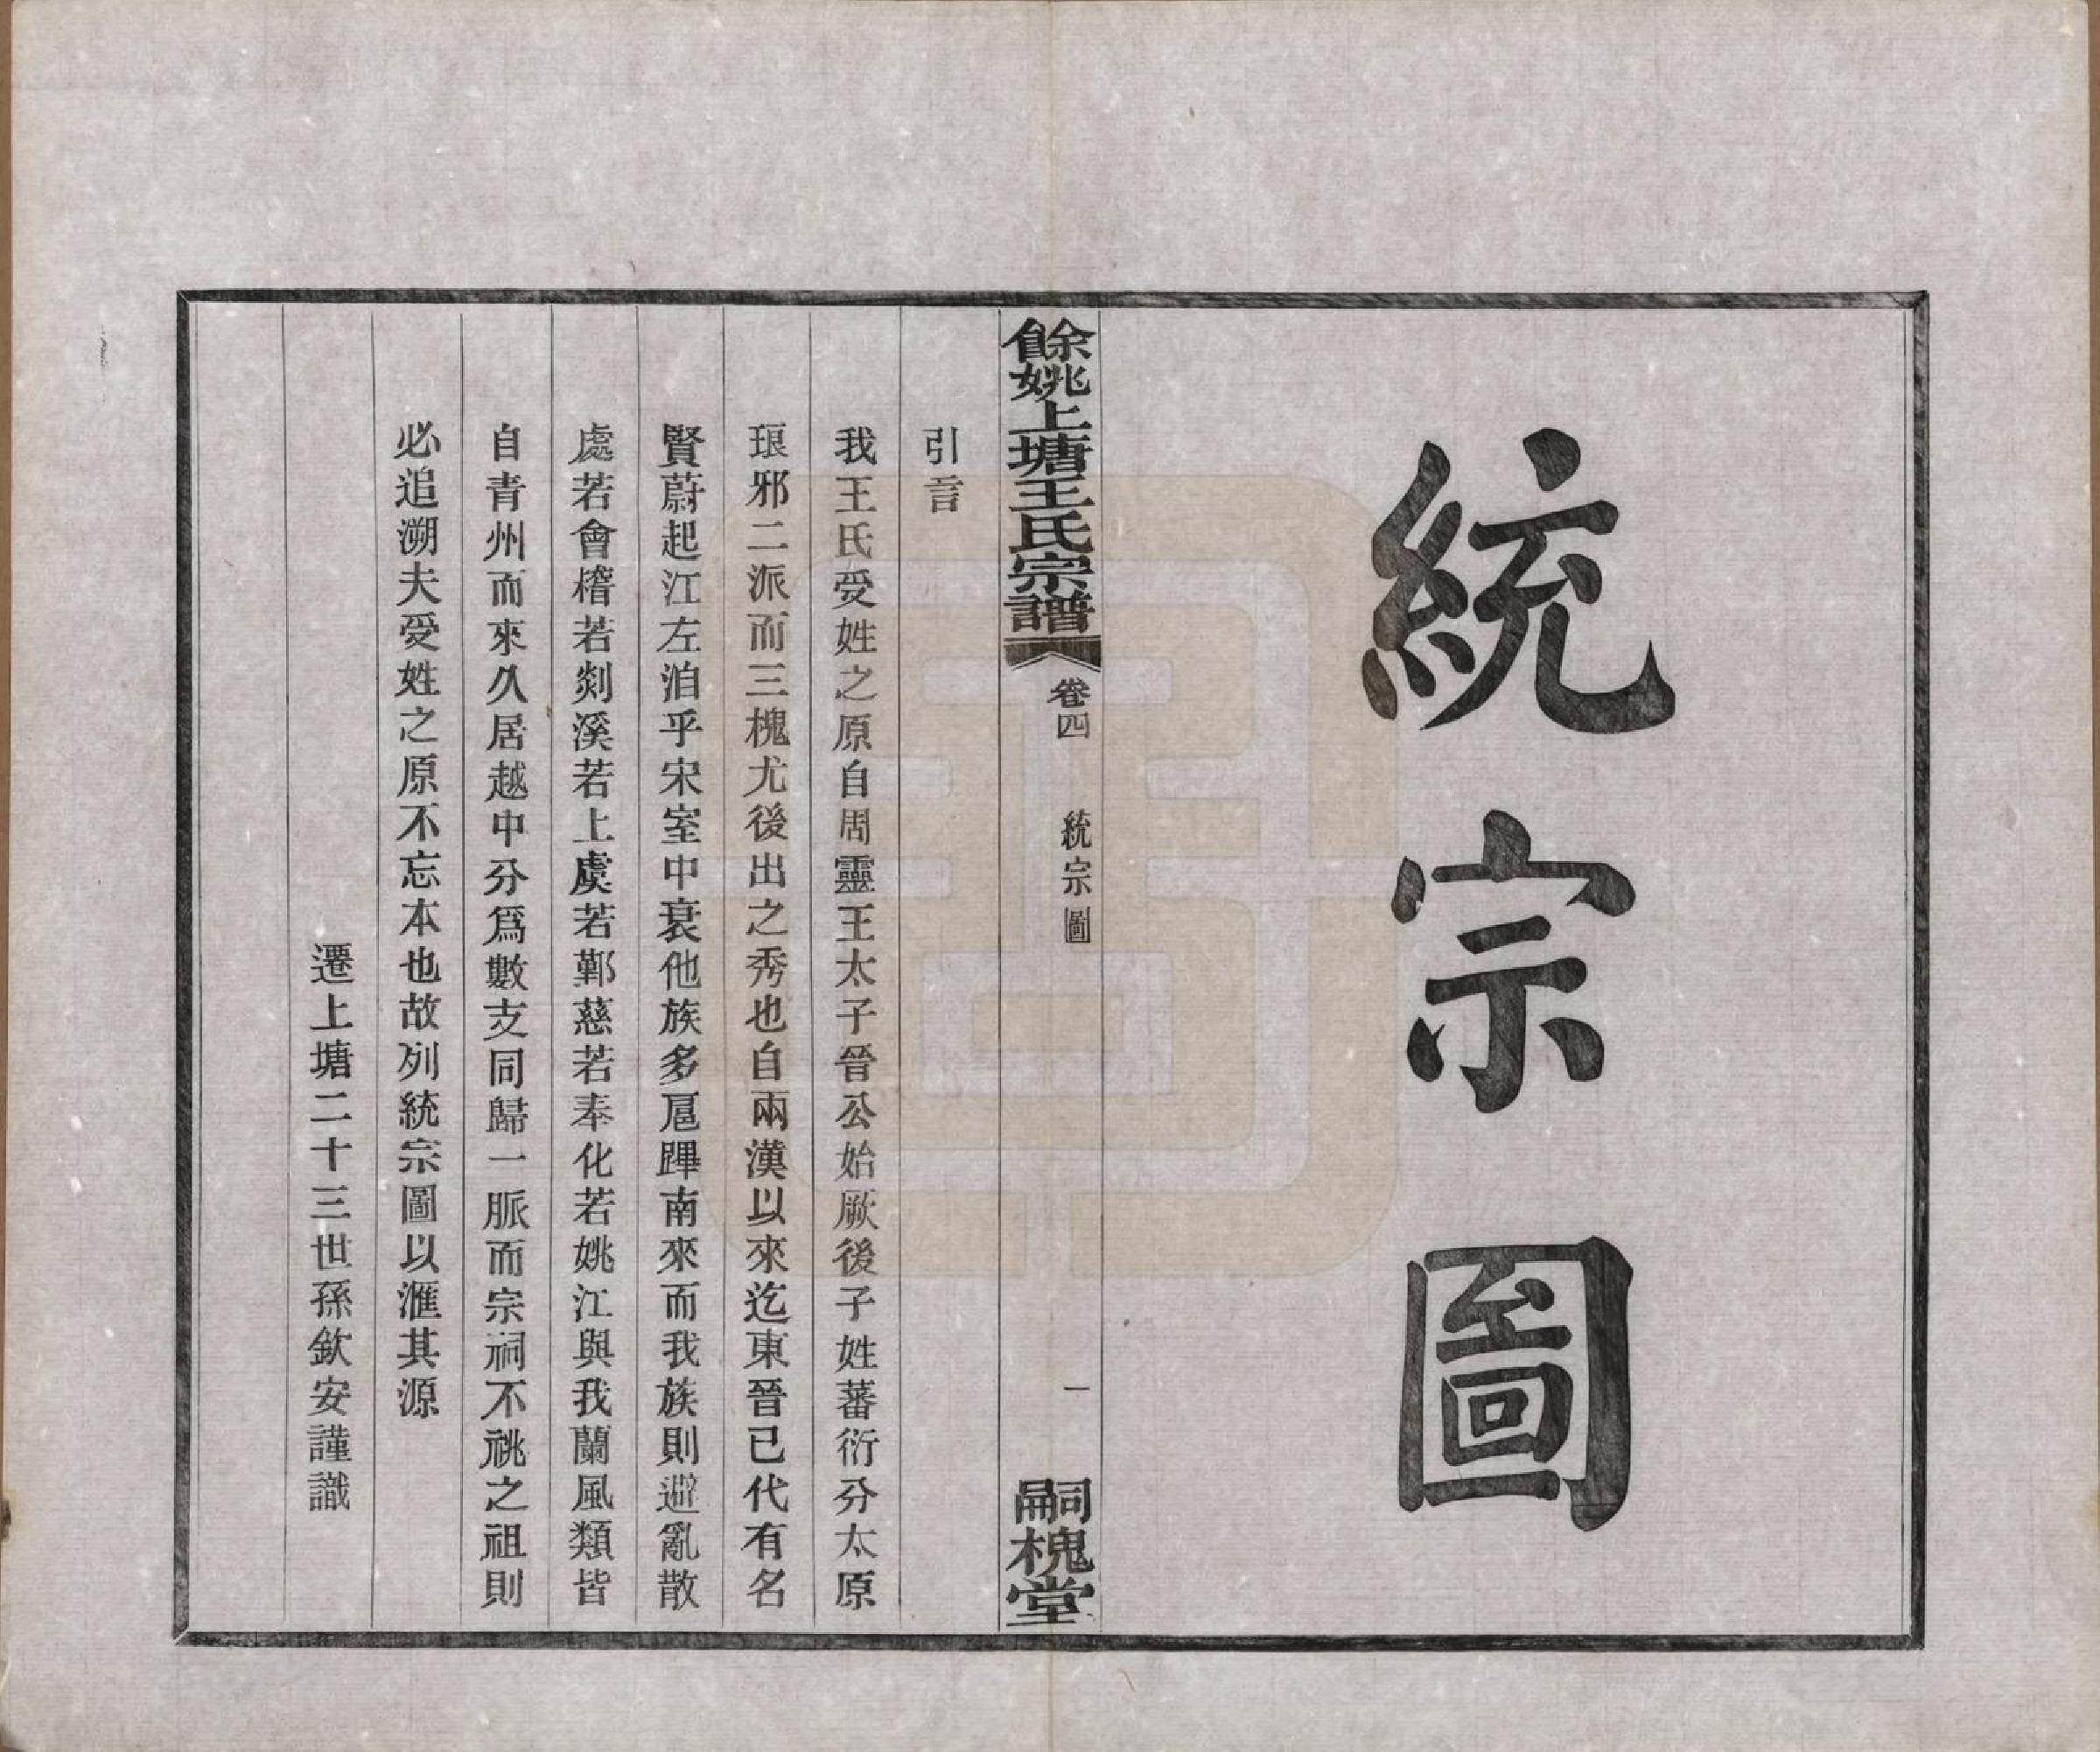 統宗圖
餘姚上塘王氏宗譜 卷四 統宗圖 一 嗣槐堂
引言
我王氏受姓之原自周靈王太子晉公始厥後子姓蕃衍分太原
琅邪二派而三槐尤後出之秀也自兩漢以來迄東晉已代有名
賢蔚起江左洎乎宋室中衰他族多扈蹕南來而我族則避亂散
處若會稽若剡溪若上虞若鄞慈若奉化若姚江與我蘭風類皆
自青州而來久居越中分爲數支同歸一脈而宗祠不祧之祖則
必追溯夫受姓之原不忘本也故列統宗圖以滙其源
遷上塘二十三世孫欽安謹識